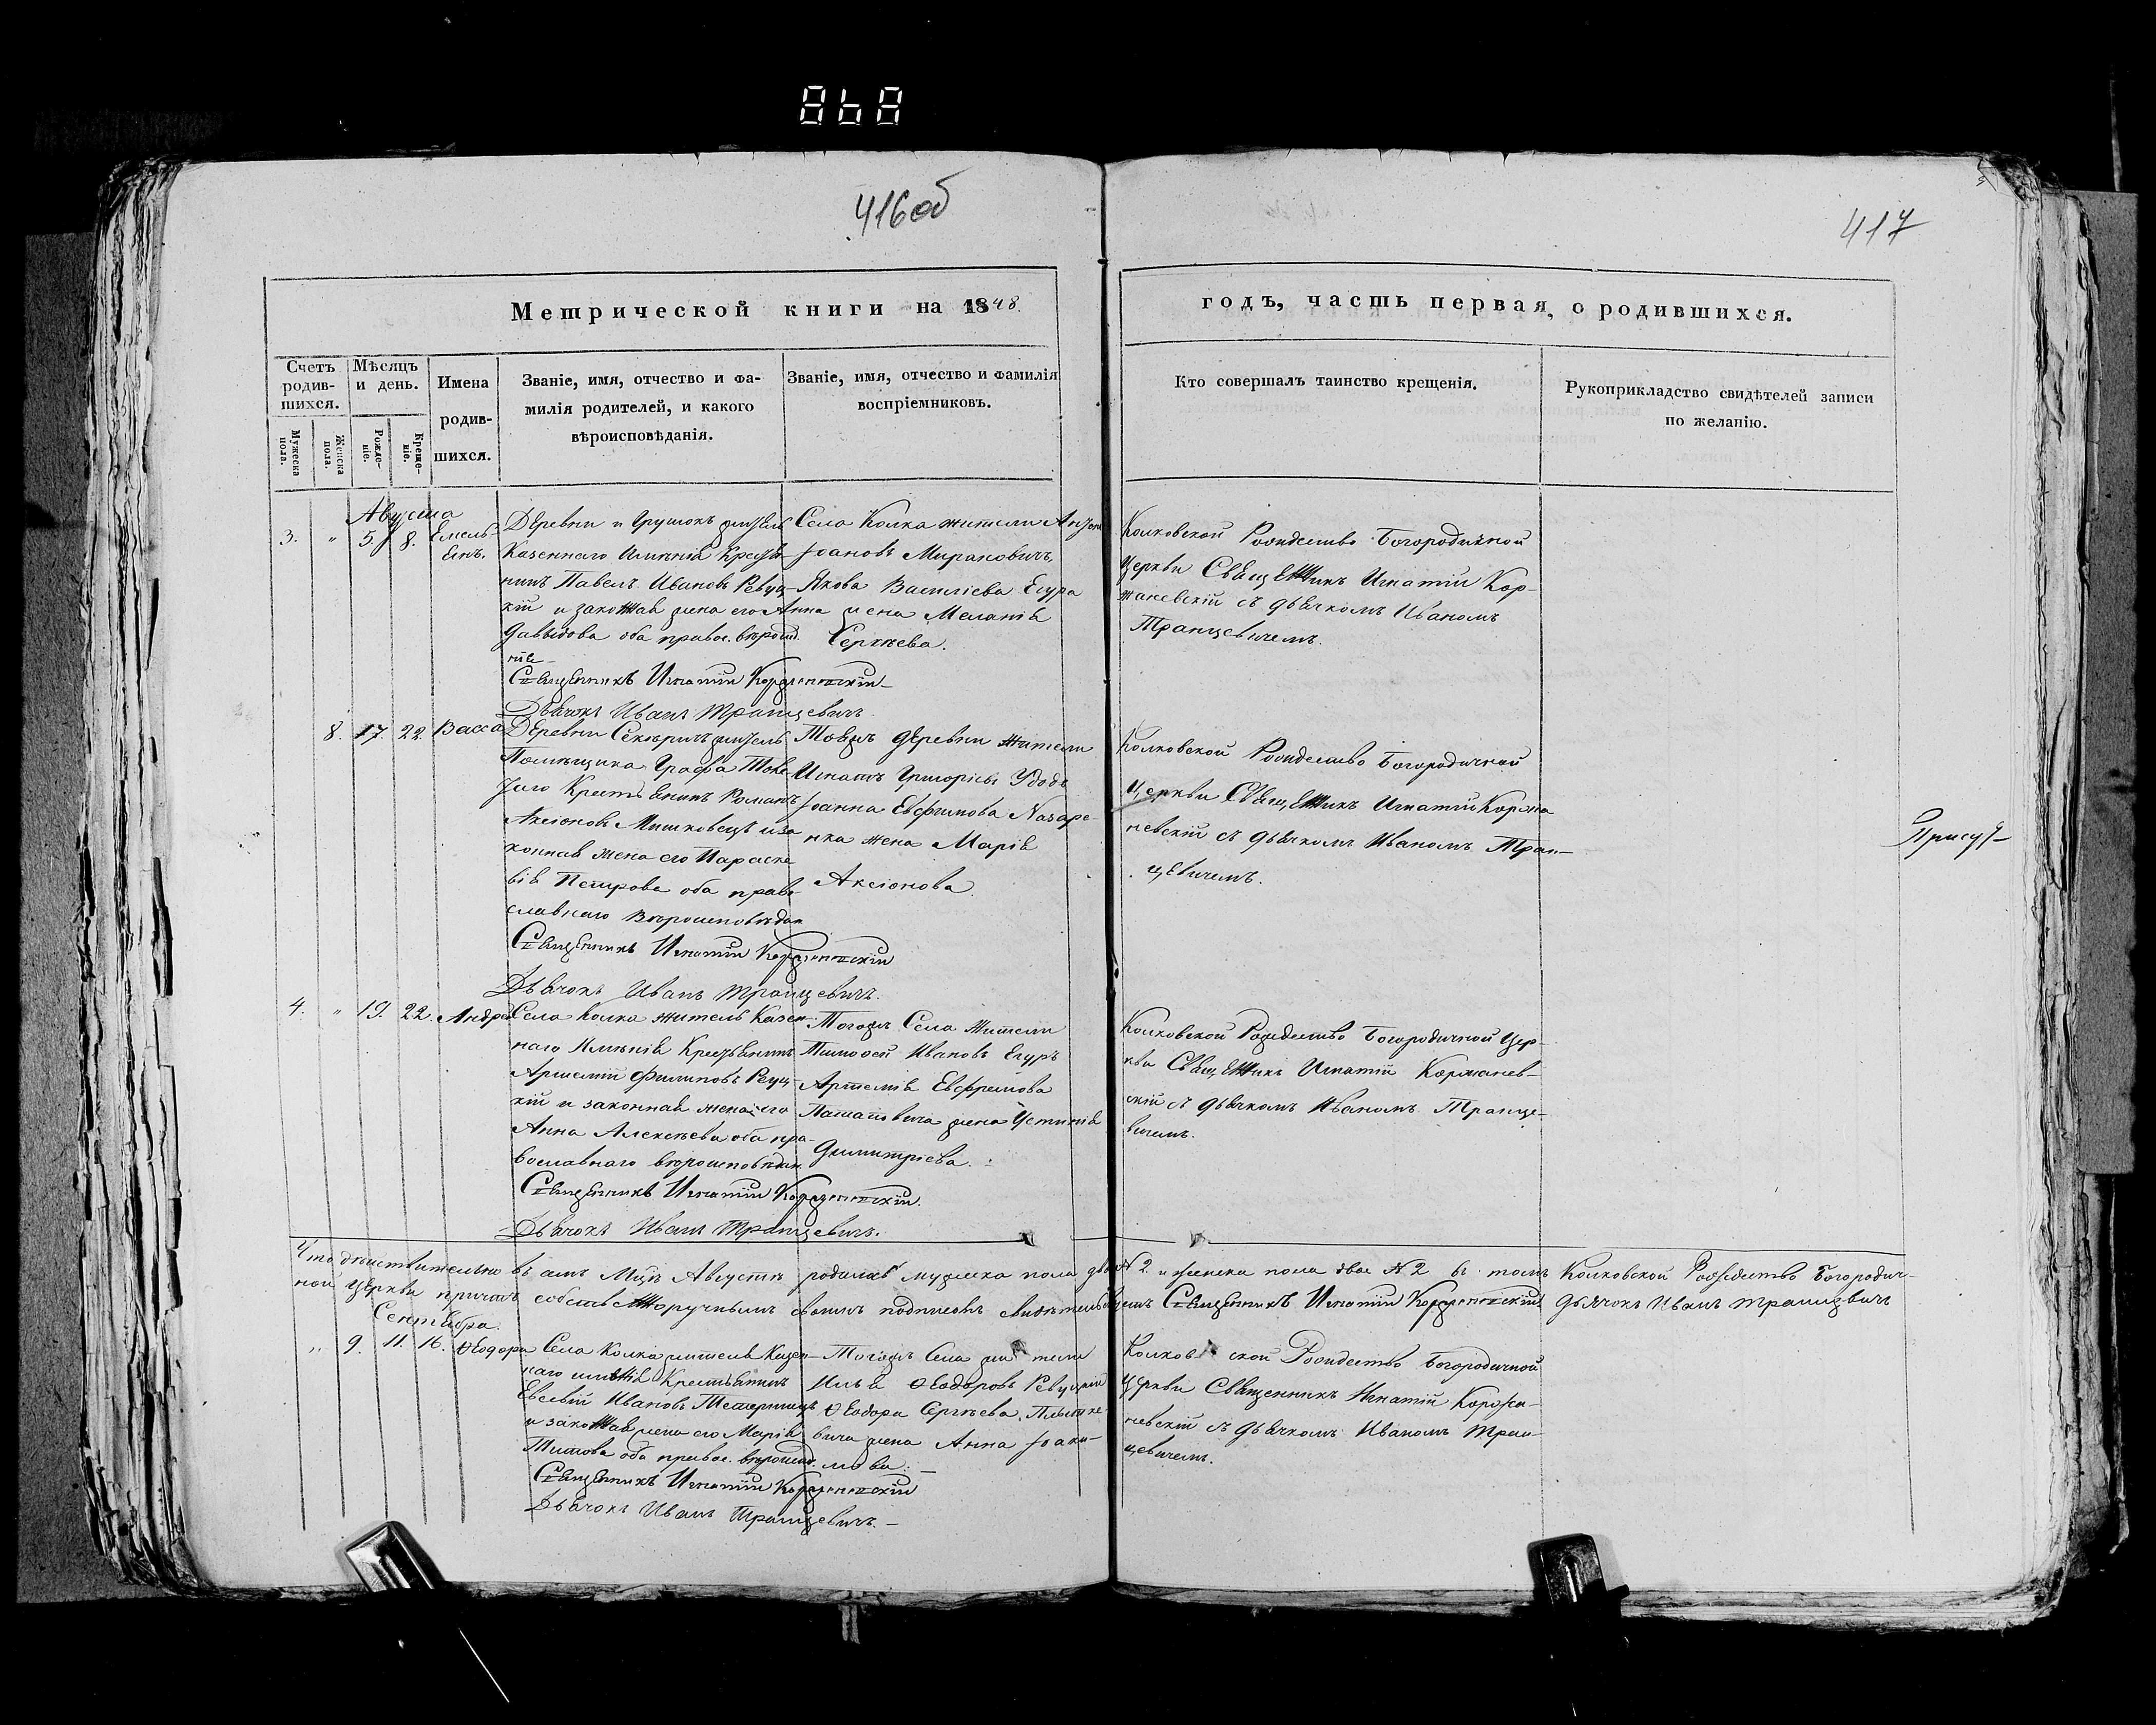 868
416об
417
Метрической книги на 1848.
годъ, часть первая, о родившихся.
Счетъ родившихся.
Мужеска пола.
Женска пола.
Мѣсяцъ и день.
Рожденіе.
Крещеніе.
Имена родившихся.
Званіе, имя, отчество и фамилія родителей, и какого вѣроисповѣданія.
Званіе, имя, отчество и фамилія воспріемниковъ.
Кто совершалъ таинство крещенія.
Рукоприкладство свидѣтелей записи по желанію.
Августа
3. " 5. 8. Емельянъ.
Деревни
Казеннаго Имѣнія Крестья-
нинъ Павелъ Ивановъ Ревуц-
кій и законная жена его Анна
Давыдова оба правос. вѣроисп.
нія
Священникъ Игнатій Коржаневскій
Дьячокъ Иванъ Транцевичъ.
Села Колка жители Антонъ
Іоановъ Мирановичъ,
Якова Василіева Егура
жена Меланія
Сергѣева.
Колковской Рождество Богородичной
Церкви Священникъ Игнатій Кор-
жаневскій съ дьячкомъ Иваномъ
Транцевичемъ.
8. 17. 22. Васса
Деревни Секиричъ житель
Помѣщика Графа
Крестьянинъ Романъ
Аксіоновъ Мишковецъ и за
конная жена его Параске
вія Петрова оба право-
славнаго вѣроисповѣдан
Священникъ Игнатій Коржаневскій
Дьячокъ Иванъ Транцевичъ.
Тояжъ деревни жители
Игнатъ Григоріевъ Удодъ
Іоанна Евфимова Назаре-
нка жена Марія
Аксіонова.
Колковской Рождество Богородичной
Церкви Священникъ Игнатій Коржа
невскій съ дьячкомъ Иваномъ Тран-
цевичемъ.
4. " 19. 22. Андрей
Села Колка житель Казен-
наго Имѣнія Крестьянинъ
Артемій Филиповъ Ревуц-
кій и законная жена его
Анна Алексѣева оба пра-
вославнаго вѣроисповѣдан.
Священникъ Игнатій Коржаневскій.
Дьячокъ Иванъ Транцевичъ.
Тогожъ Села Жители
Тимофей Ивановъ Егуръ
Артемія Евфремова
жена Устинія
Димитріева.
Колковской Рождество Богородичной Цер-
кви Священникъ Игнатій Коржанев-
скій съ дьячкомъ Иваномъ Транце-
вичемъ.
Что дѣйствительно въ Августѣ родилось мужеска пола два №2. и женска пола двѣ №2 въ томъ Колковской Рождество Богородич-
ной Церкви причтъ собственноручнымъ своимъ подписомъ свидѣтельствуетъ Священникъ Игнатій Коржаневскій дьячокъ Иванъ Транцевичъ
Сентября.
" 9. 11. 16. Ѳеодора
Села Колка житель Казен-
наго имѣнія Крестьянинъ
Евсевій Ивановъ
и законная жена его Марія
Титова оба правос. вѣроисп.
Священникъ Игнатій Коржаневскій
Дьячокъ Иванъ Транцевичъ.
Тогожъ Села жители
Илья Ѳеодоровъ Ревуцкій
Ѳеодора Сергѣева
жена Анна Іоаки-
мова.
Колковской Рождество Богородичной
Церкви Священникъ Игнатій Коржа-
невскій съ дьячкомъ Иваномъ Тран-
цевичемъ.